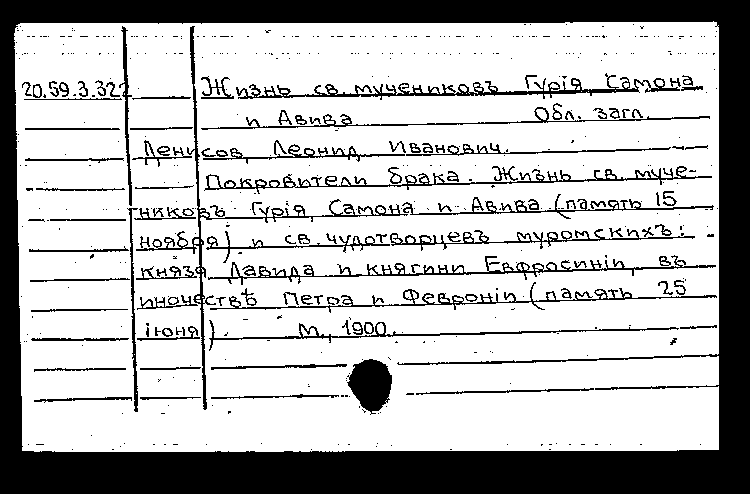 20.59.3.322 Жизнь св. мучениковъ Гурія, Самона
и Авива Обл. загл.
Денисов, Леонид Иванович.
Покровители брака. Жизнь св. муче-
никовъ Гурія, Самона и Авива (память 15
ноября) и св. чудотворцевъ муромскихъ:
князя Давида и княгини Евфросиніи, въ
иночествѣ Петра и Февроніи (память 25
іюня). М., 1900.